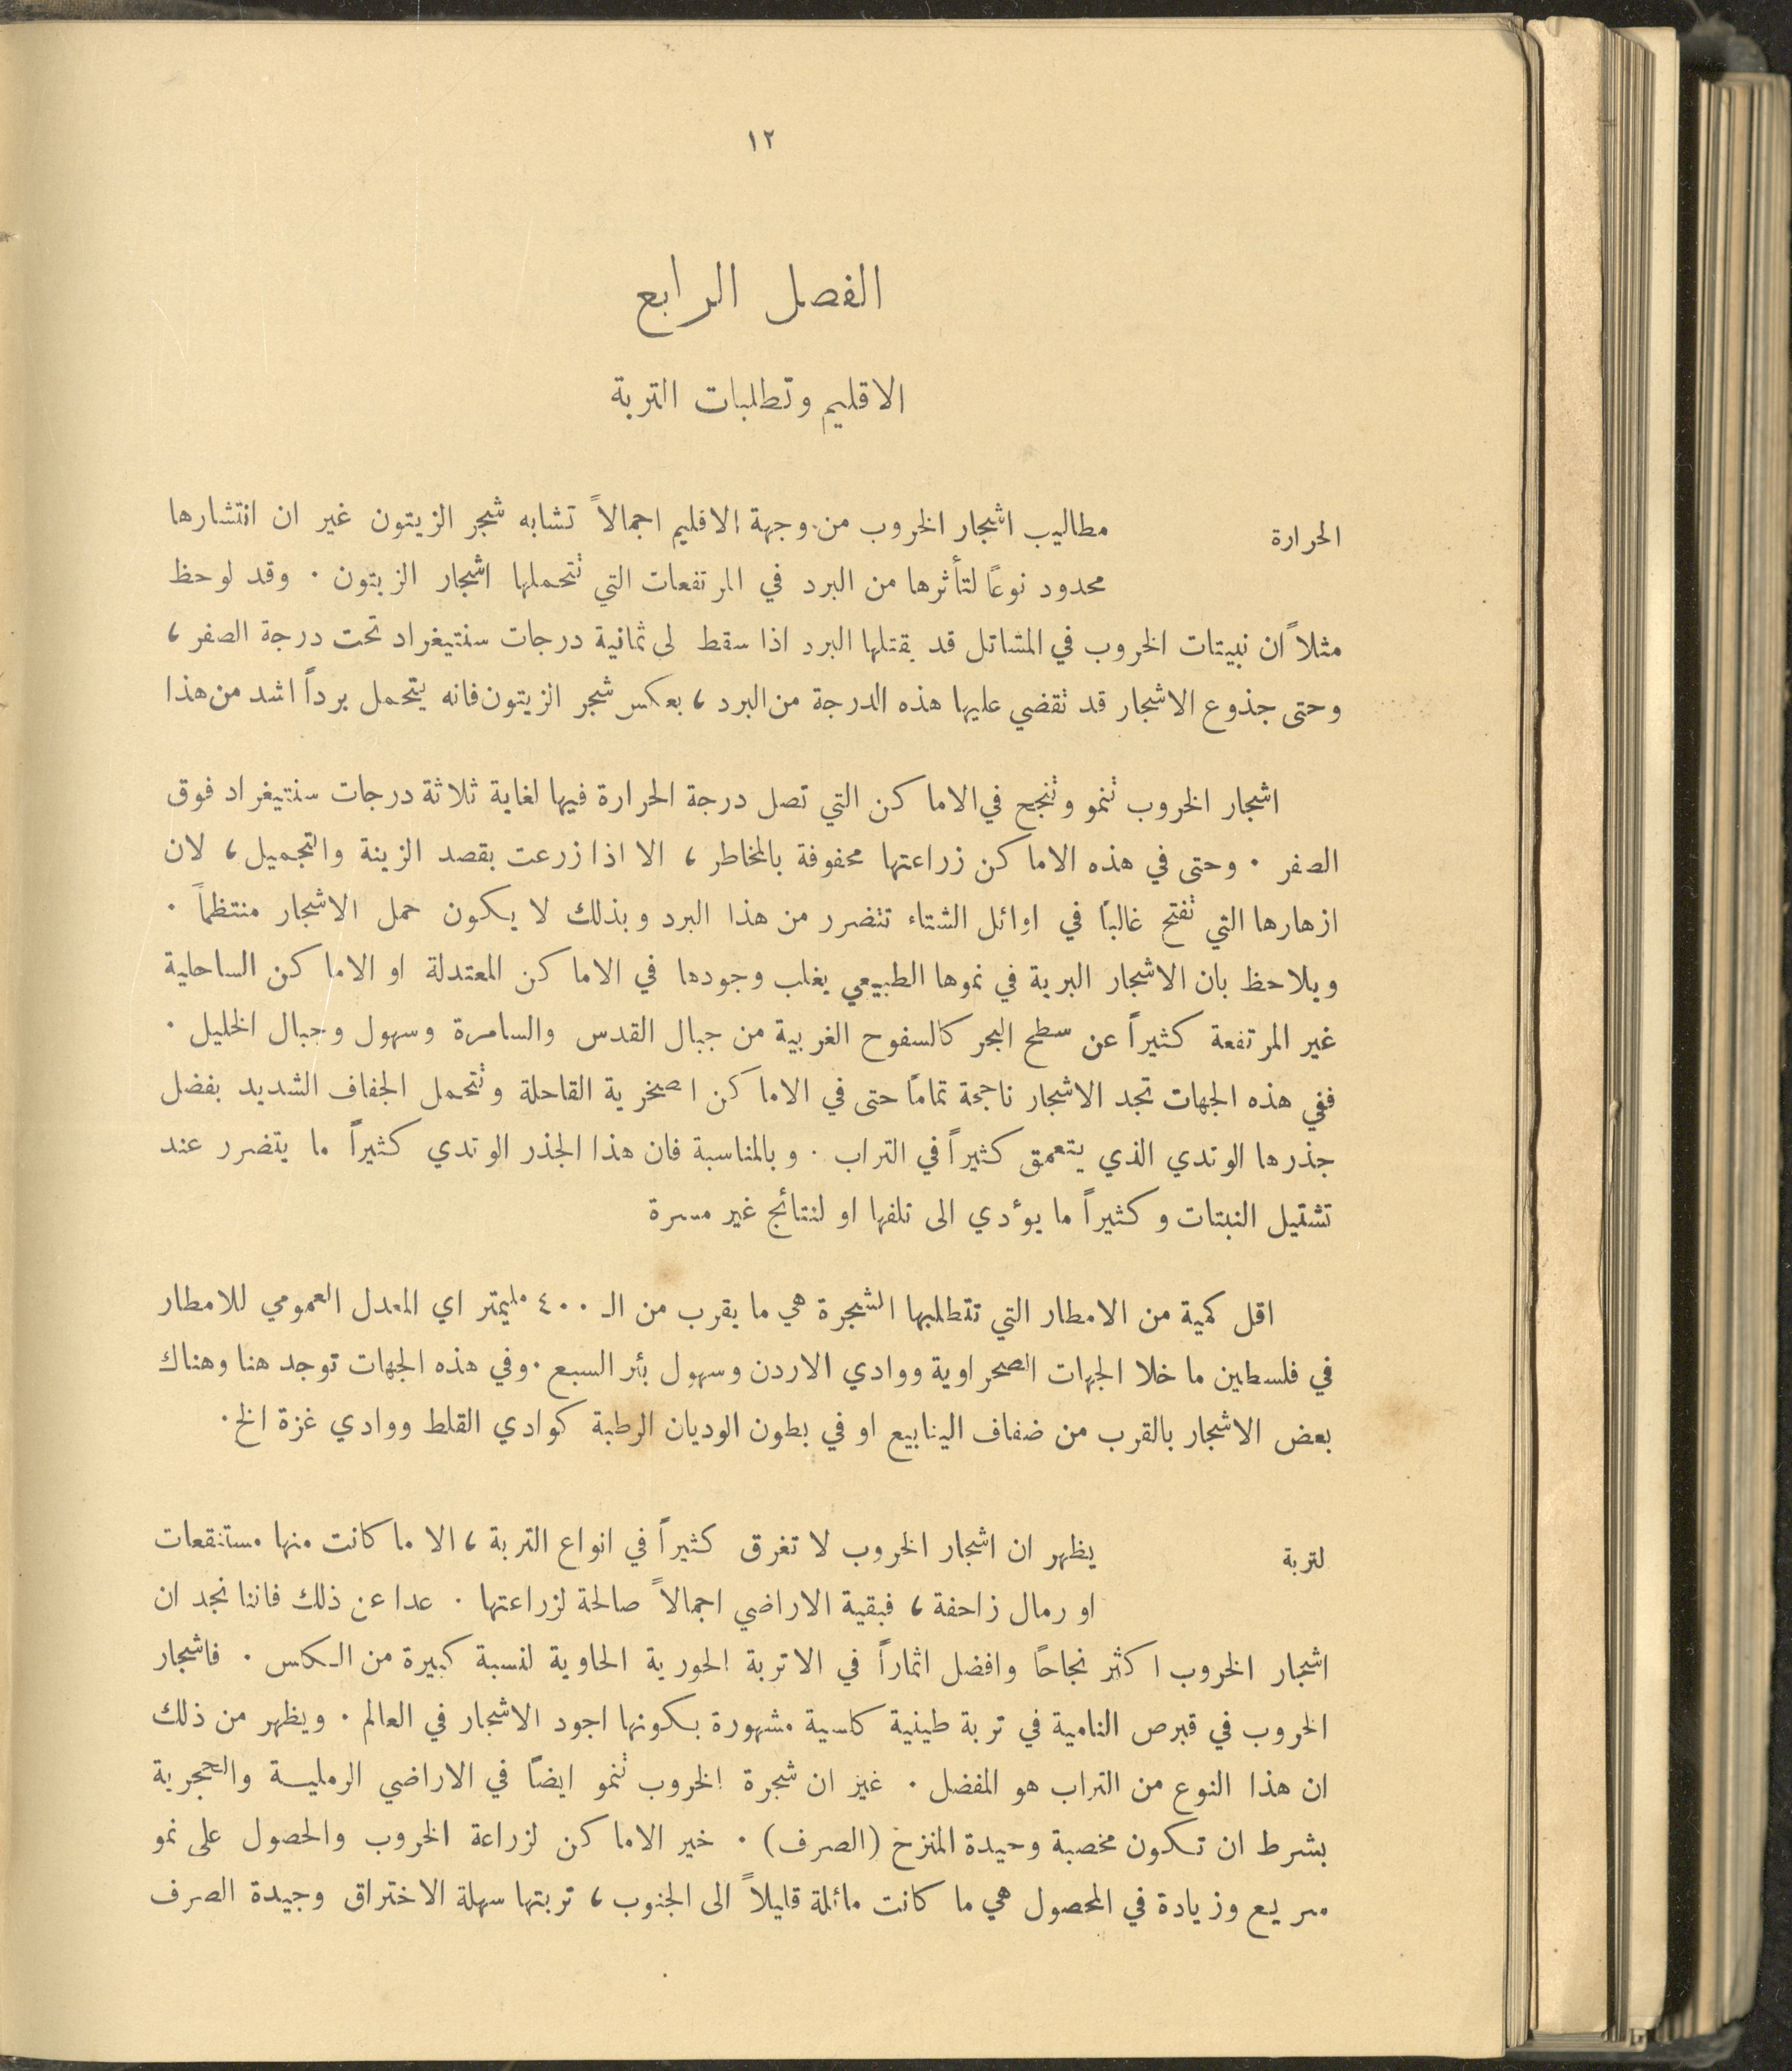 ١٢
الفصل الرابع
الاقليم وتطلبات التربة
الحرارة
مطاليب اشجار الخروب من وجهة الاقليم اجمالاً تشابه شجر الزيتون غير ان انتشارها
محدود نوعًا لتأثرها من البرد في المرتفعات التي تتحملها اشجار الزيتون . وقد لوحظ
مثلاً ان نبيتات الخروب في المشاتل قد يقتلها البرد اذا سقط لى ثمانية درجات سنتيغراد تحت درجة الصفر ،
وحتى جذوع الاشجار قد تقضي عليها هذه الدرجة من البرد ، بعكس شجر الزيتون فانه يتحمل برداً اشد من هذا
اشجار الخروب تنمو وتنجح في الاماكن التي تصل درجة الحرارة فيها لغاية ثلاثة درجات سنتيغراد فوق
الصفر . وحتى في هذه الاماكن زراعتها محفوفة بالمخاطر ، الا اذا زرعت بقصد الزينة والتجميل ، لان
ازهارها التي تفتح غالبًا في اوائل الشتاء تتضرر من هذا البرد وبذلك لا يكون حمل الاشجار منتظماً .
ويلاحظ بان الاشجار البرية في نموها الطبيعي يغلب وجودها في الاماكن المعتدلة او الاماكن الساحلية
غير المرتفعة كثيراً عن سطح البحر كالسفوح الغربية من جبال القدس والسامرة وسهول وجبال الخليل .
ففي هذه الجهات تجد الاشجار ناجحة تمامًا حتى في الاماكن اصخرية القاحلة وتتحمل الجفاف الشديد بفضل
جذرها الوتدي الذي يتعمق كثيراً في التراب . وبالمناسبة فان هذا الجذر الوتدي كثيراً ما يتضرر عند
تشتيل النبتات وكثيراً ما يوءدي الى تلفها او لنتائج غير مسرة
اقل كمية من الامطار التي تتطلبها الشجرة هي ما يقرب من الـ ٤٠٠ مليمتر اي المعدل العمومي للامطار
في فلسطين ما خلا الجهات الصحراوية ووادي الاردن وسهول بئر السبع . وفي هذه الجهات توجد هنا وهناك
بعض الاشجار بالقرب من ضفاف الينابيع او في بطون الوديان الرطبة كوادي القلط ووادي غزة الخ .
لتربة
يظهر ان اشجار الخروب لا تغرق كثيراً في انواع التربة ، الا ما كانت منها مستنقعات
او رمال زاحفة ، فبقية الاراضي اجمالاً صالحة لزراعتها . عدا عن ذلك فاننا نجد ان
اشجار الخروب اكثر نجاحًا وافضل اثماراً في الاتربة الحورية الحاوية لنسبة كبيرة من الكلس . فاشجار
الخروب في قبرص النامية في تربة طينية كلسية مشهورة بكونها اجود الاشجار في العالم . ويظهر من ذلك
ان هذا النوع من التراب هو المفضل . غير ان شجرة الخروب تنمو ايضاً في الاراضي الرملية والحجرية
بشرط ان تكون مخصبة وحيدة المنزخ (الصرف) . خير الاماكن لزراعة الخروب والحصول على نمو
سريع وزيادة في المحصول هي ما كانت مائلة قليلاً الى الجنوب ، تربتها سهلة الاختراق وجيدة الصرف